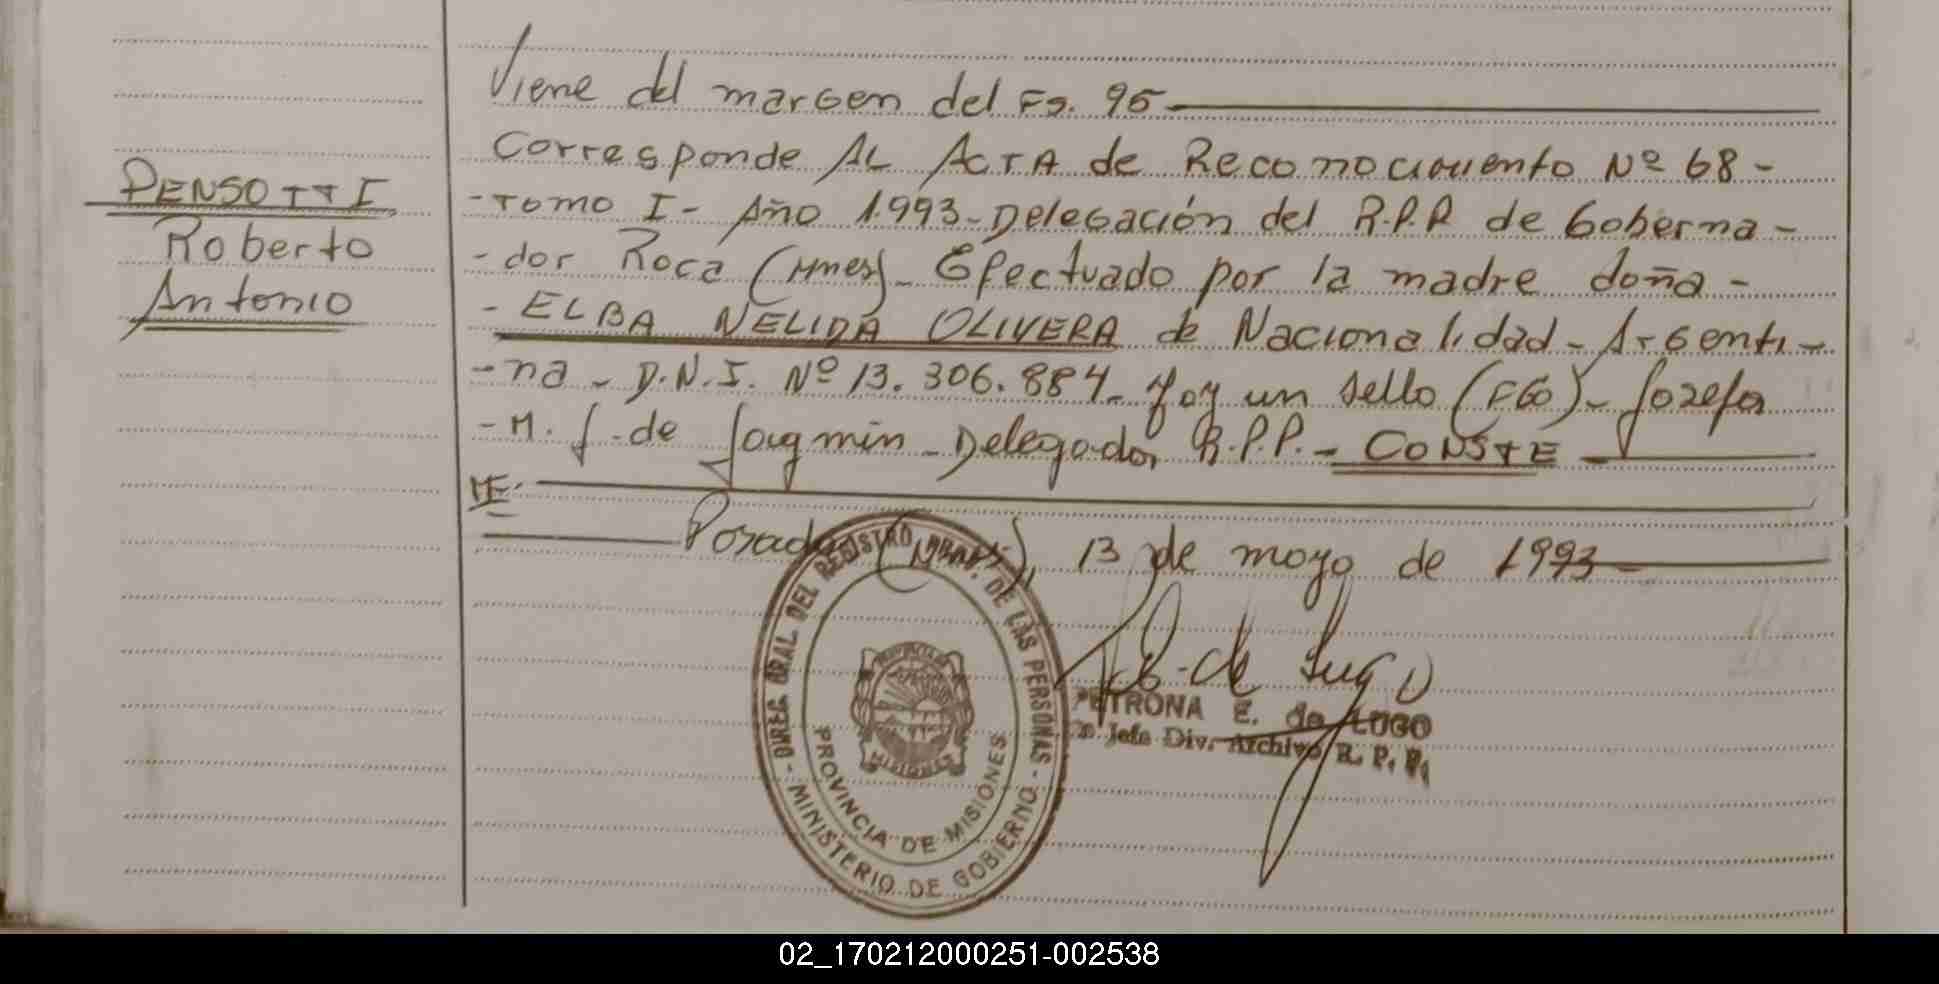 PENSOTTI
Roberto
Antonio
Viene del margen del Fs. 95
Corresponde AL ACTA de Reconocimiento Nº 68 -
- Tomo I - Año 1.993 - Delegación del R.P.P. de Goberna -
- dor Roca (Mnes) - Efectuado por la madre doña -
- ELBA NELIDA OLIVERA de Nacionalidad - Argenti -
- na - D.N.I. Nº 13.306.884 - Hay un sello (FGO) - Josefa
- M. J. de - Delegada R.P.P. - CONSTE
Posadas (Mnes), 13 de mayo de 1993
DIREC. GRAL DEL REGISTRO PROV. DE LAS PERSONAS - MINISTERIO DE GOBIERNO -
PROVINCIA DE MISIONES
MISIONES
de Lugo
PETRONA E. de LUGO
Jefa Div. Archivo R. P. P.
02_170212000251-002538